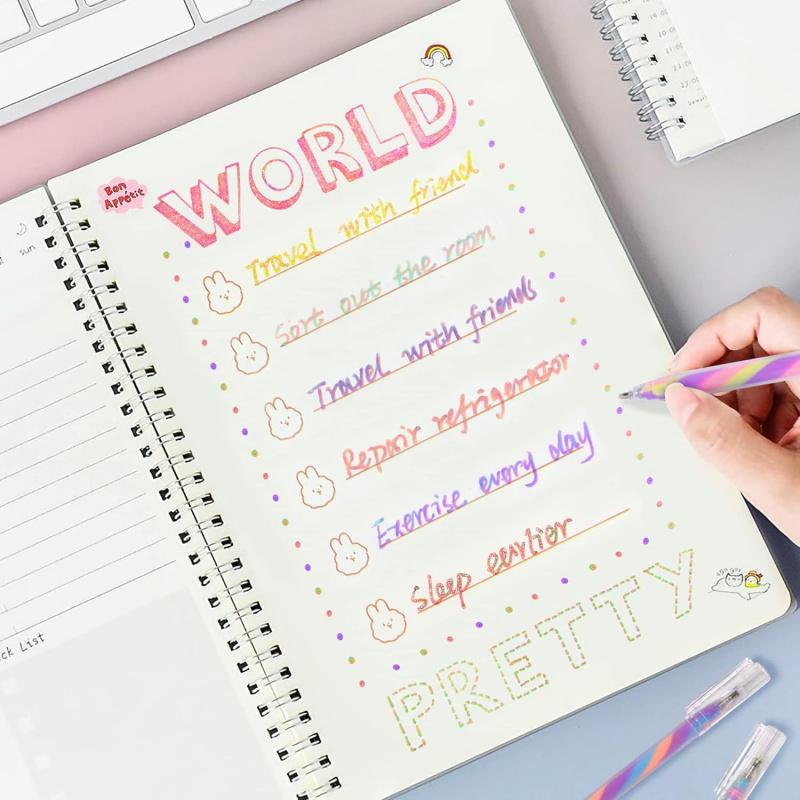 WORLD
Bon
Appétit
Travel with friend
Sort out the room
Travel with friends
Repair refrigerator
Exercise every day
Sleep eerlier
PRETTY
sun
ck List
20:00
21:00
22:00